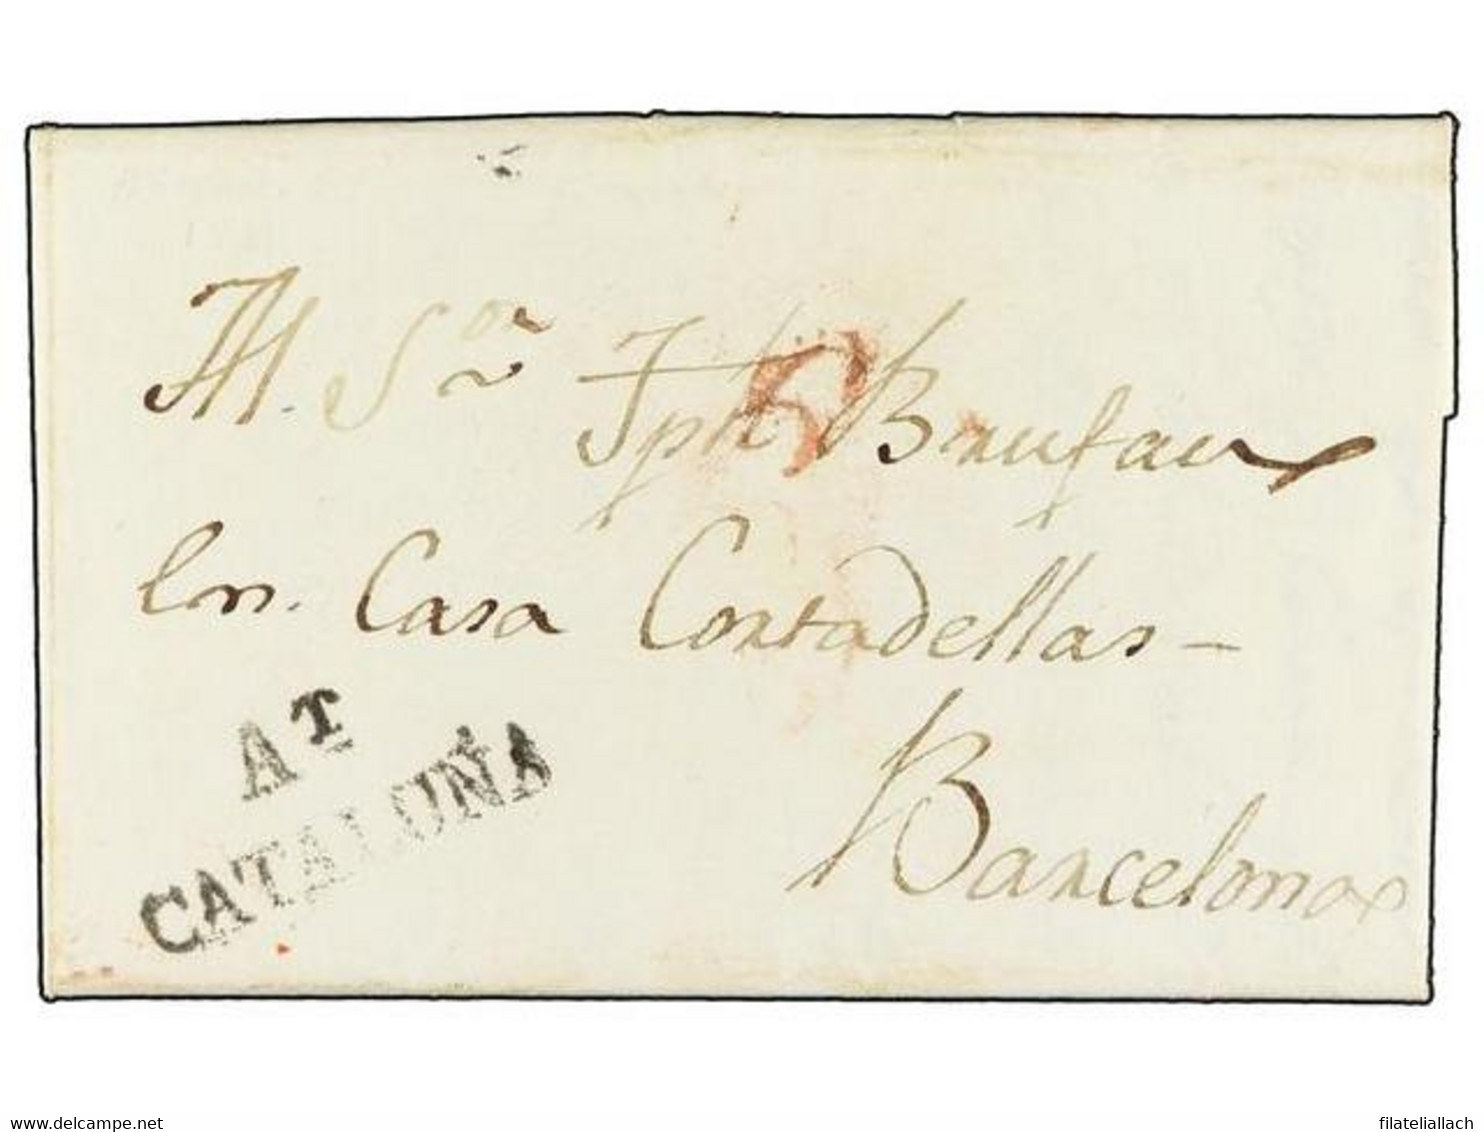 Al. Sor Jph Brufau
En. Casa Contadellas -
Barcelona
AT
CATALUÑA
www.delcampe.net
filateliallach